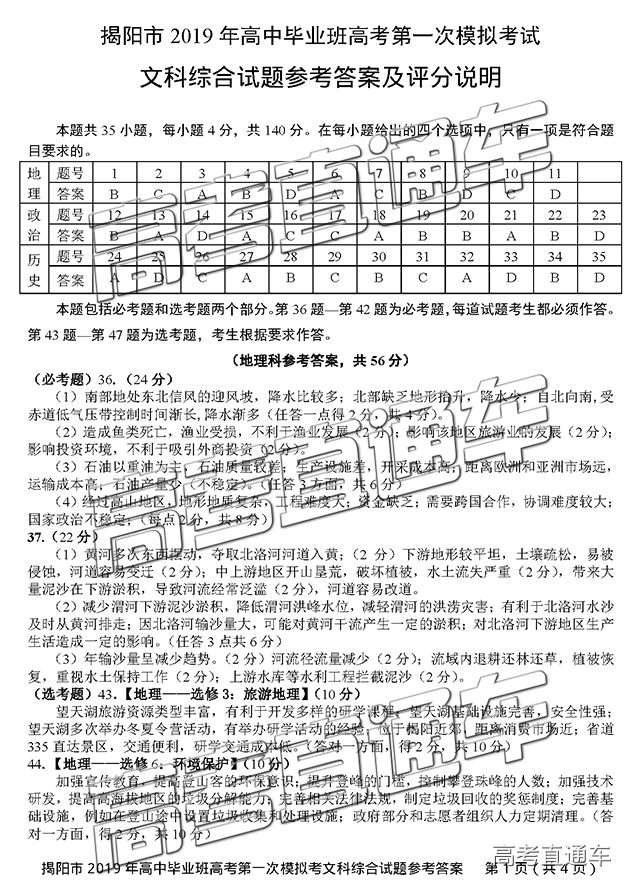 揭阳市 2019 年高中毕业班高考第一次模拟考试
文科综合试题参考答案及评分说明
本题共 35 小题，每小题 4 分，共 140 分。在每小题给出的四个选项中，只有一项是符合题
目要求的。
地理 题号 1 2 3 4 5 6 7 8 9 10 11
答案 B C A B D A C B D C D
政治 题号 12 13 14 15 16 17 18 19 20 21 22 23
答案 B A D A C C A B B A B D
历史 题号 24 25 26 27 28 29 30 31 32 33 34 35
答案 A D C A B C B C A D B D
本题包括必考题和选考题两个部分。第 36 题—第 42 题为必考题，每道试题考生都必须作答。
第 43 题—第 47 题为选考题，考生根据要求作答。
（地理科参考答案，共 56 分）
（必考题）36.（24 分）
（1）南部地处东北信风的迎风坡，降水比较多；北部缺乏地形抬升，降水少；自北向南，受
赤道低气压带控制时间渐长，降水渐多（任答一点得 2 分，共 4 分）。
（2）造成鱼类死亡，渔业受损，不利于渔业发展（2 分）；影响该地区旅游业的发展（2 分）；
影响投资环境，不利于吸引外商投资（2 分）。
（3）石油以重油为主，石油质量较差；生产设施差，开采成本高；距离欧洲和亚洲市场远，
运输成本高；石油产量少（不稳定）。（任答 3 方面，共 6 分）
（4）经过高山地区，地形地质复杂，工程难度大；资金缺乏；需要跨国合作，协调难度较大；
国家政治不稳定；（每点 2 分，共 8 分）
37.（22 分）
（1）黄河多次东西摆动，夺取北洛河河道入黄；（2 分）下游地形较平坦，土壤疏松，易被
侵蚀，河道容易变迁（2 分）；中上游地区开山垦荒，破坏植被，水土流失严重（2 分），带来大
量泥沙在下游淤积，导致河流经常泛滥（2 分），河道容易改道。
（2）减少渭河下游泥沙淤积，降低渭河洪峰水位，减轻渭河的洪涝灾害；有利于北洛河水沙
及时从黄河排走；因北洛河输沙量大，可能对黄河干流产生一定的淤积；对北洛河下游地区生产
生活造成一定的影响。（任答 3 点共 6 分）
（3）年输沙量呈减少趋势。（2 分）河流径流量减少（2 分）；流域内退耕还林还草，植被恢
复，重视水土保持工作（2 分）；上游水库等水利工程拦截泥沙（2 分）。
（选考题）43.【地理——选修 3：旅游地理】（10 分）
望天湖旅游资源类型丰富，有利于开发多样的研学课程；望天湖基础设施完善，安全性强；
望天湖多次举办冬夏令营活动，有举办研学活动的经验；位于揭阳近郊，距离消费市场近；省道
335 直达景区，交通便利，研学交通成本低。（答对一方面，得 2 分，共 10 分）
44.【地理——选修 6：环境保护】（10 分）
加强宣传教育，提高登山客的环保意识；提升登峰的门槛，控制攀登珠峰的人数；加强技术
研发，提高高海拔地区的垃圾分解能力；完善相关法律法规，制定垃圾回收的奖惩制度；完善基
础设施，例如在登山途中设置垃圾收集和处理设施；政府部分和志愿者组织人力定期清理。（答
对一方面，得 2 分，共 10 分）
揭阳市 2019 年高中毕业班高考第一次模拟考文科综合试题参考答案 第 1 页（共 4 页）
高考直通车
高考直通车
高考直通车
高考直通车